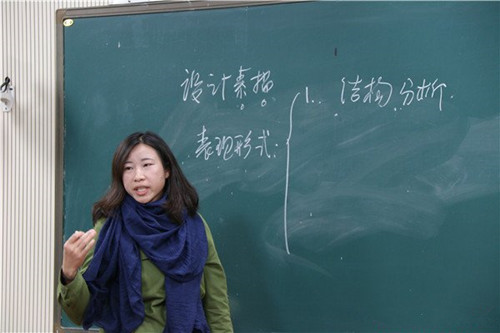 设计素描
表现形式：
1. 结构分析